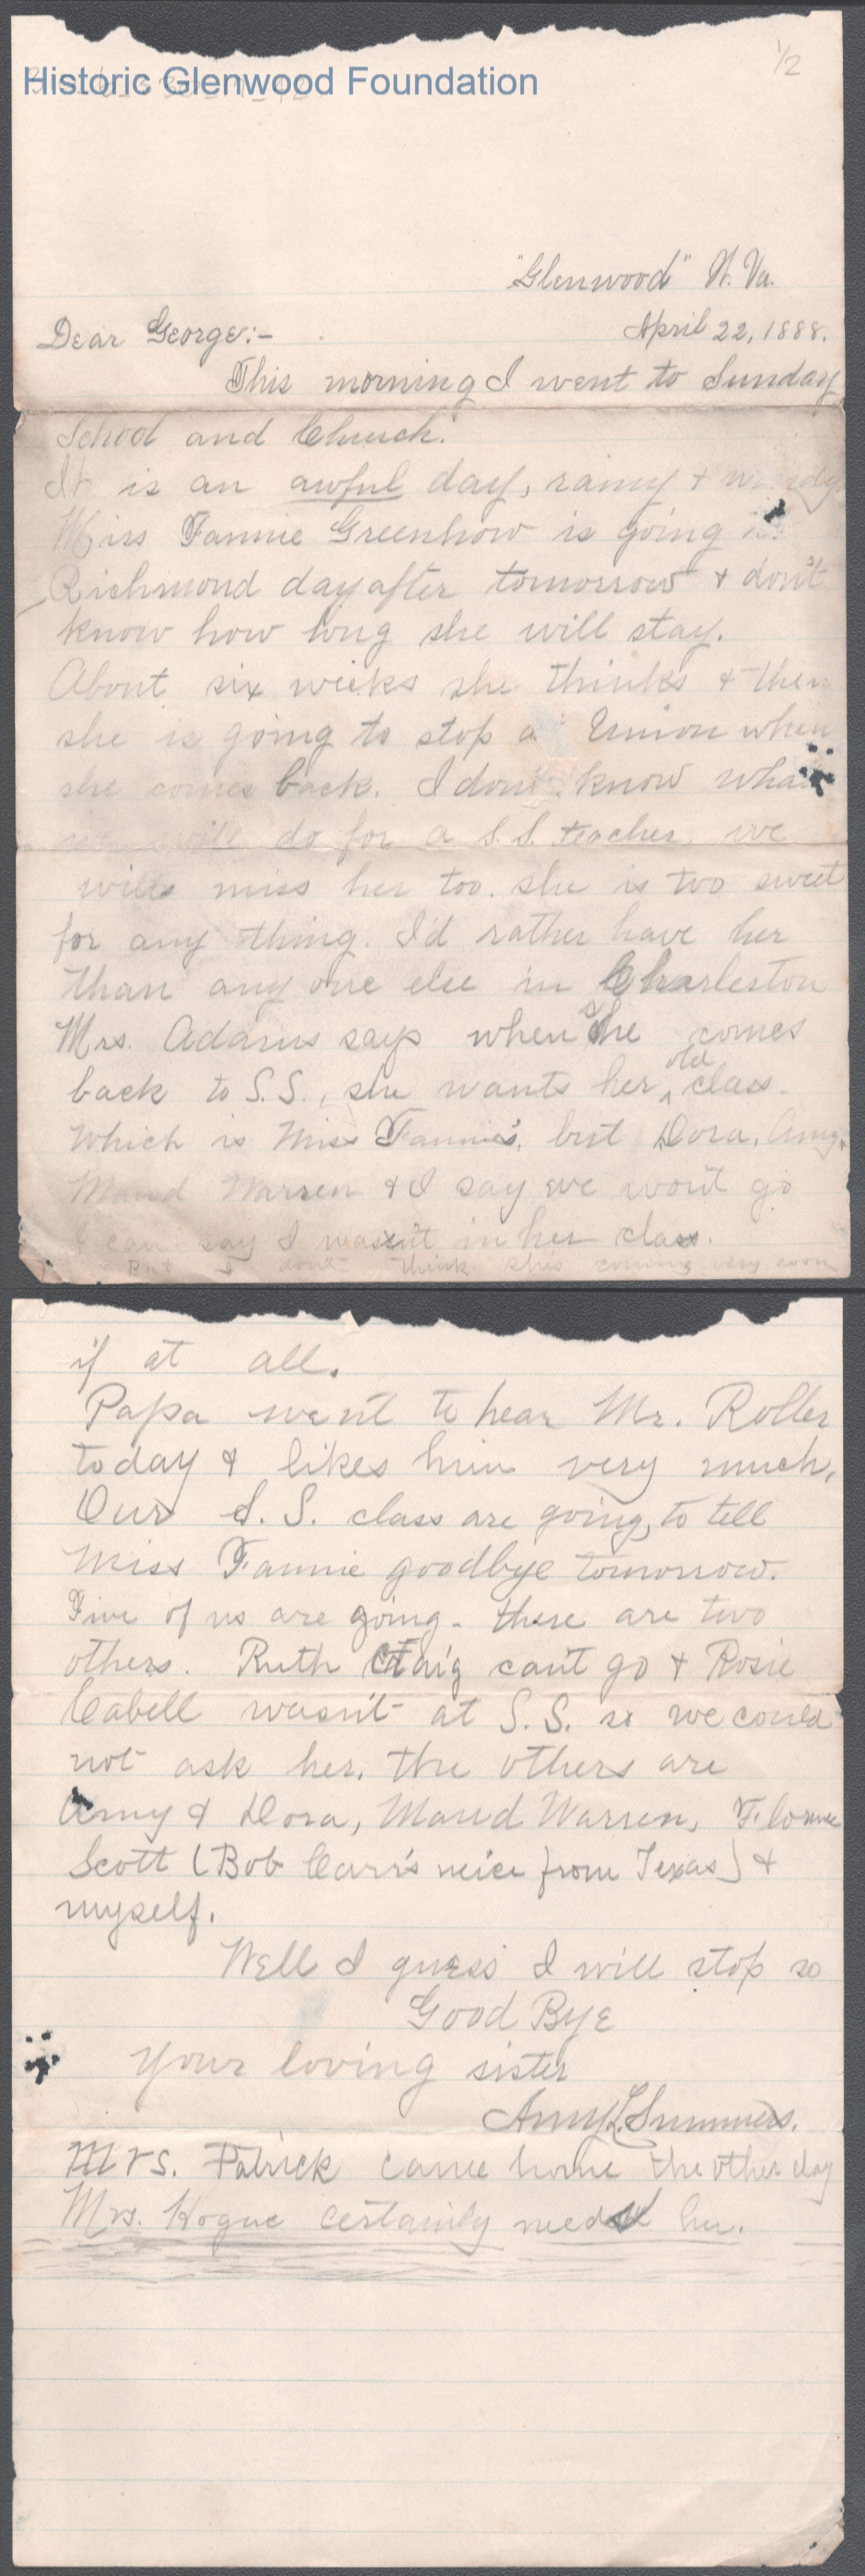 Historic Glenwood Foundation
1/2
"Glenwood" W. Va.
April 22, 1888.
Dear George:-
This morning I went to Sunday
School and Church.
It is an awful day, rainy + windy
Miss Fannie Greenhow is going
Richmond day after tomorrow + don't
know how long she will stay.
About six weeks she thinks + then
she is going to stop a Union when
she comes back. I don't know what
we will do for a S.S. teacher we
will miss her too. she is too sweet
for any thing. I'd rather have her
than any one else in Charleston
Mrs. Adams says when she comes
back to S.S., she wants her old class.
Which is Miss Fannie's, but Dora, Amy,
Maud Warren & I say we won't go
I can say I wasn't in her class.
But I don't think she's coming very soon
if at all.
Papa went to hear Mr. Roller
today & likes him very much.
Our S.S. class are going, to tell
Miss Fannie goodbye tomorrow.
Five of us are going. there are two
others. Ruth Craig can't go + Rosie
Cabell wasn't at S.S. so we could
not ask her. the others are
Amy & Dora, Maud Warren,
Scott (Bob Carr's neice from Texas) &
myself.
Well I guess I will stop so
Good Bye
Your loving sister
Amy L. Summers.
Mrs. Patrick came home the other day
Mrs. Hogue certainly needs her.